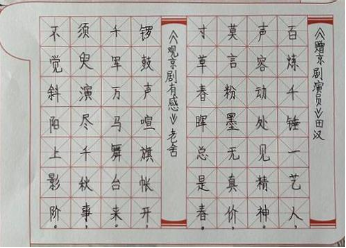 《赠京剧演员》田汉
百炼千锤一艺人
声容动处见精神
莫言粉墨无真价
寸草春晖总是春
《观京剧有感》老舍
锣鼓声喧旗帐开
千军万马舞台来
须臾演尽千秋事
不觉斜阳上影阶